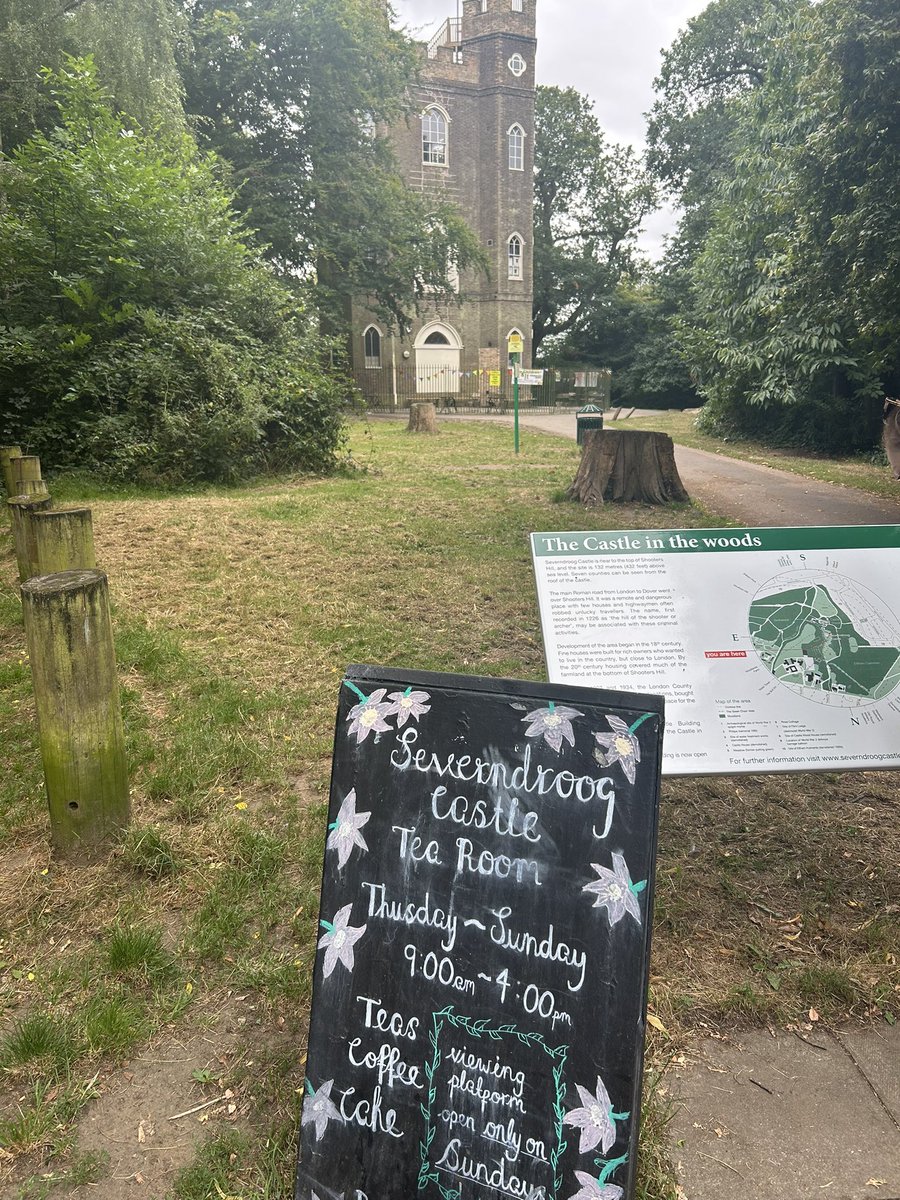 The Castle in the woods
Severndroog Castle is near to the top of Shooters
Hill, and the site is 132 metres (432 feet) above
sea level. Seven counties can be seen from the
roof of the Castle.
The main Roman road from London to Dover went
over Shooters Hill. It was a remote and dangerous
place with few houses and highwaymen often
robbed unlucky travellers. The name, first
recorded in 1226 as 'the hill of the shooter or
archer', may be associated with these criminal
activities.
Development of the area began in the 18th century.
Fine houses were built for rich owners who wanted
to live in the country, but close to London. By
the 20th century housing covered much of the
farmland at the bottom of Shooters Hill.
and 1934, the London County
bought
Building
the Castle in
is now open
S
E
N
you are here
Map of the area
For further information visit www.severndroogcastle
Severndroog
Castle
Tea Room
Thusday ~ Sunday
9:00am ~ 4:00pm
Teas
Coffee
Cake
viewing
platform
open only on
Sundays